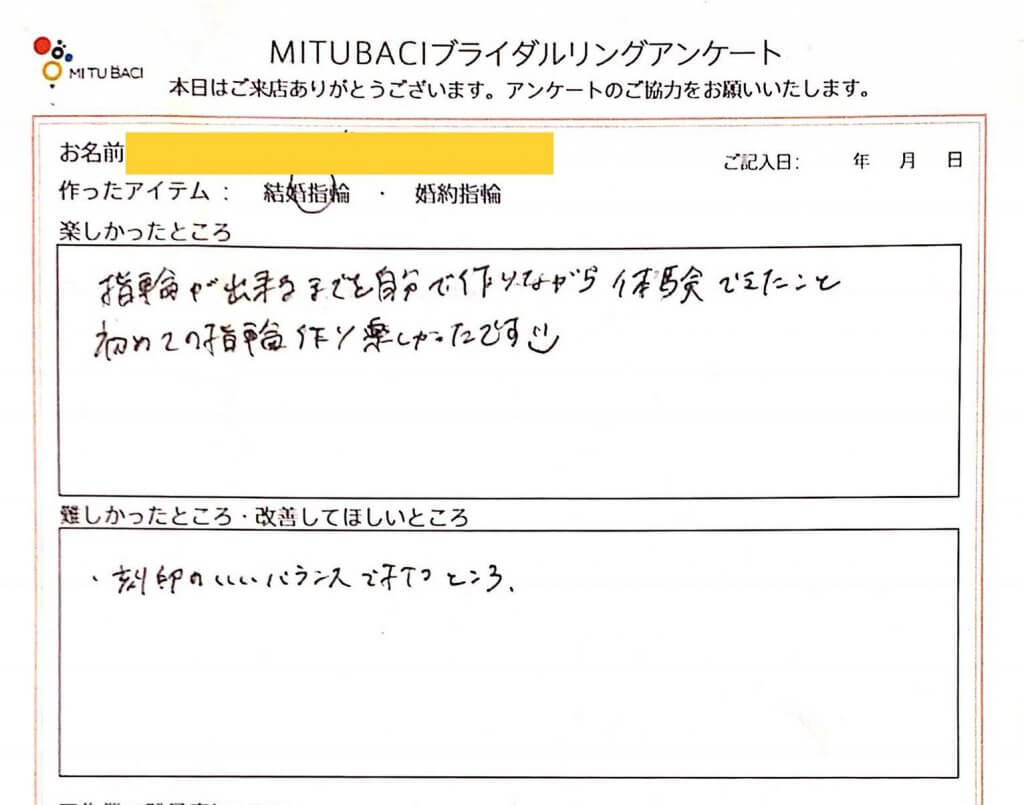 MITUBACI
MITUBACIブライダルリングアンケート
本日はご来店ありがとうございます。アンケートのご協力をお願いいたします。
お名前
ご記入日: 年 月 日
作ったアイテム : 結婚指輪 ・ 婚約指輪
楽しかったところ
指輪が出来るまでを自分で作りながら体験できたこと
初めての指輪作り楽しかったです
難しかったところ・改善してほしいところ
・刻印のいいバランスで打つところ.